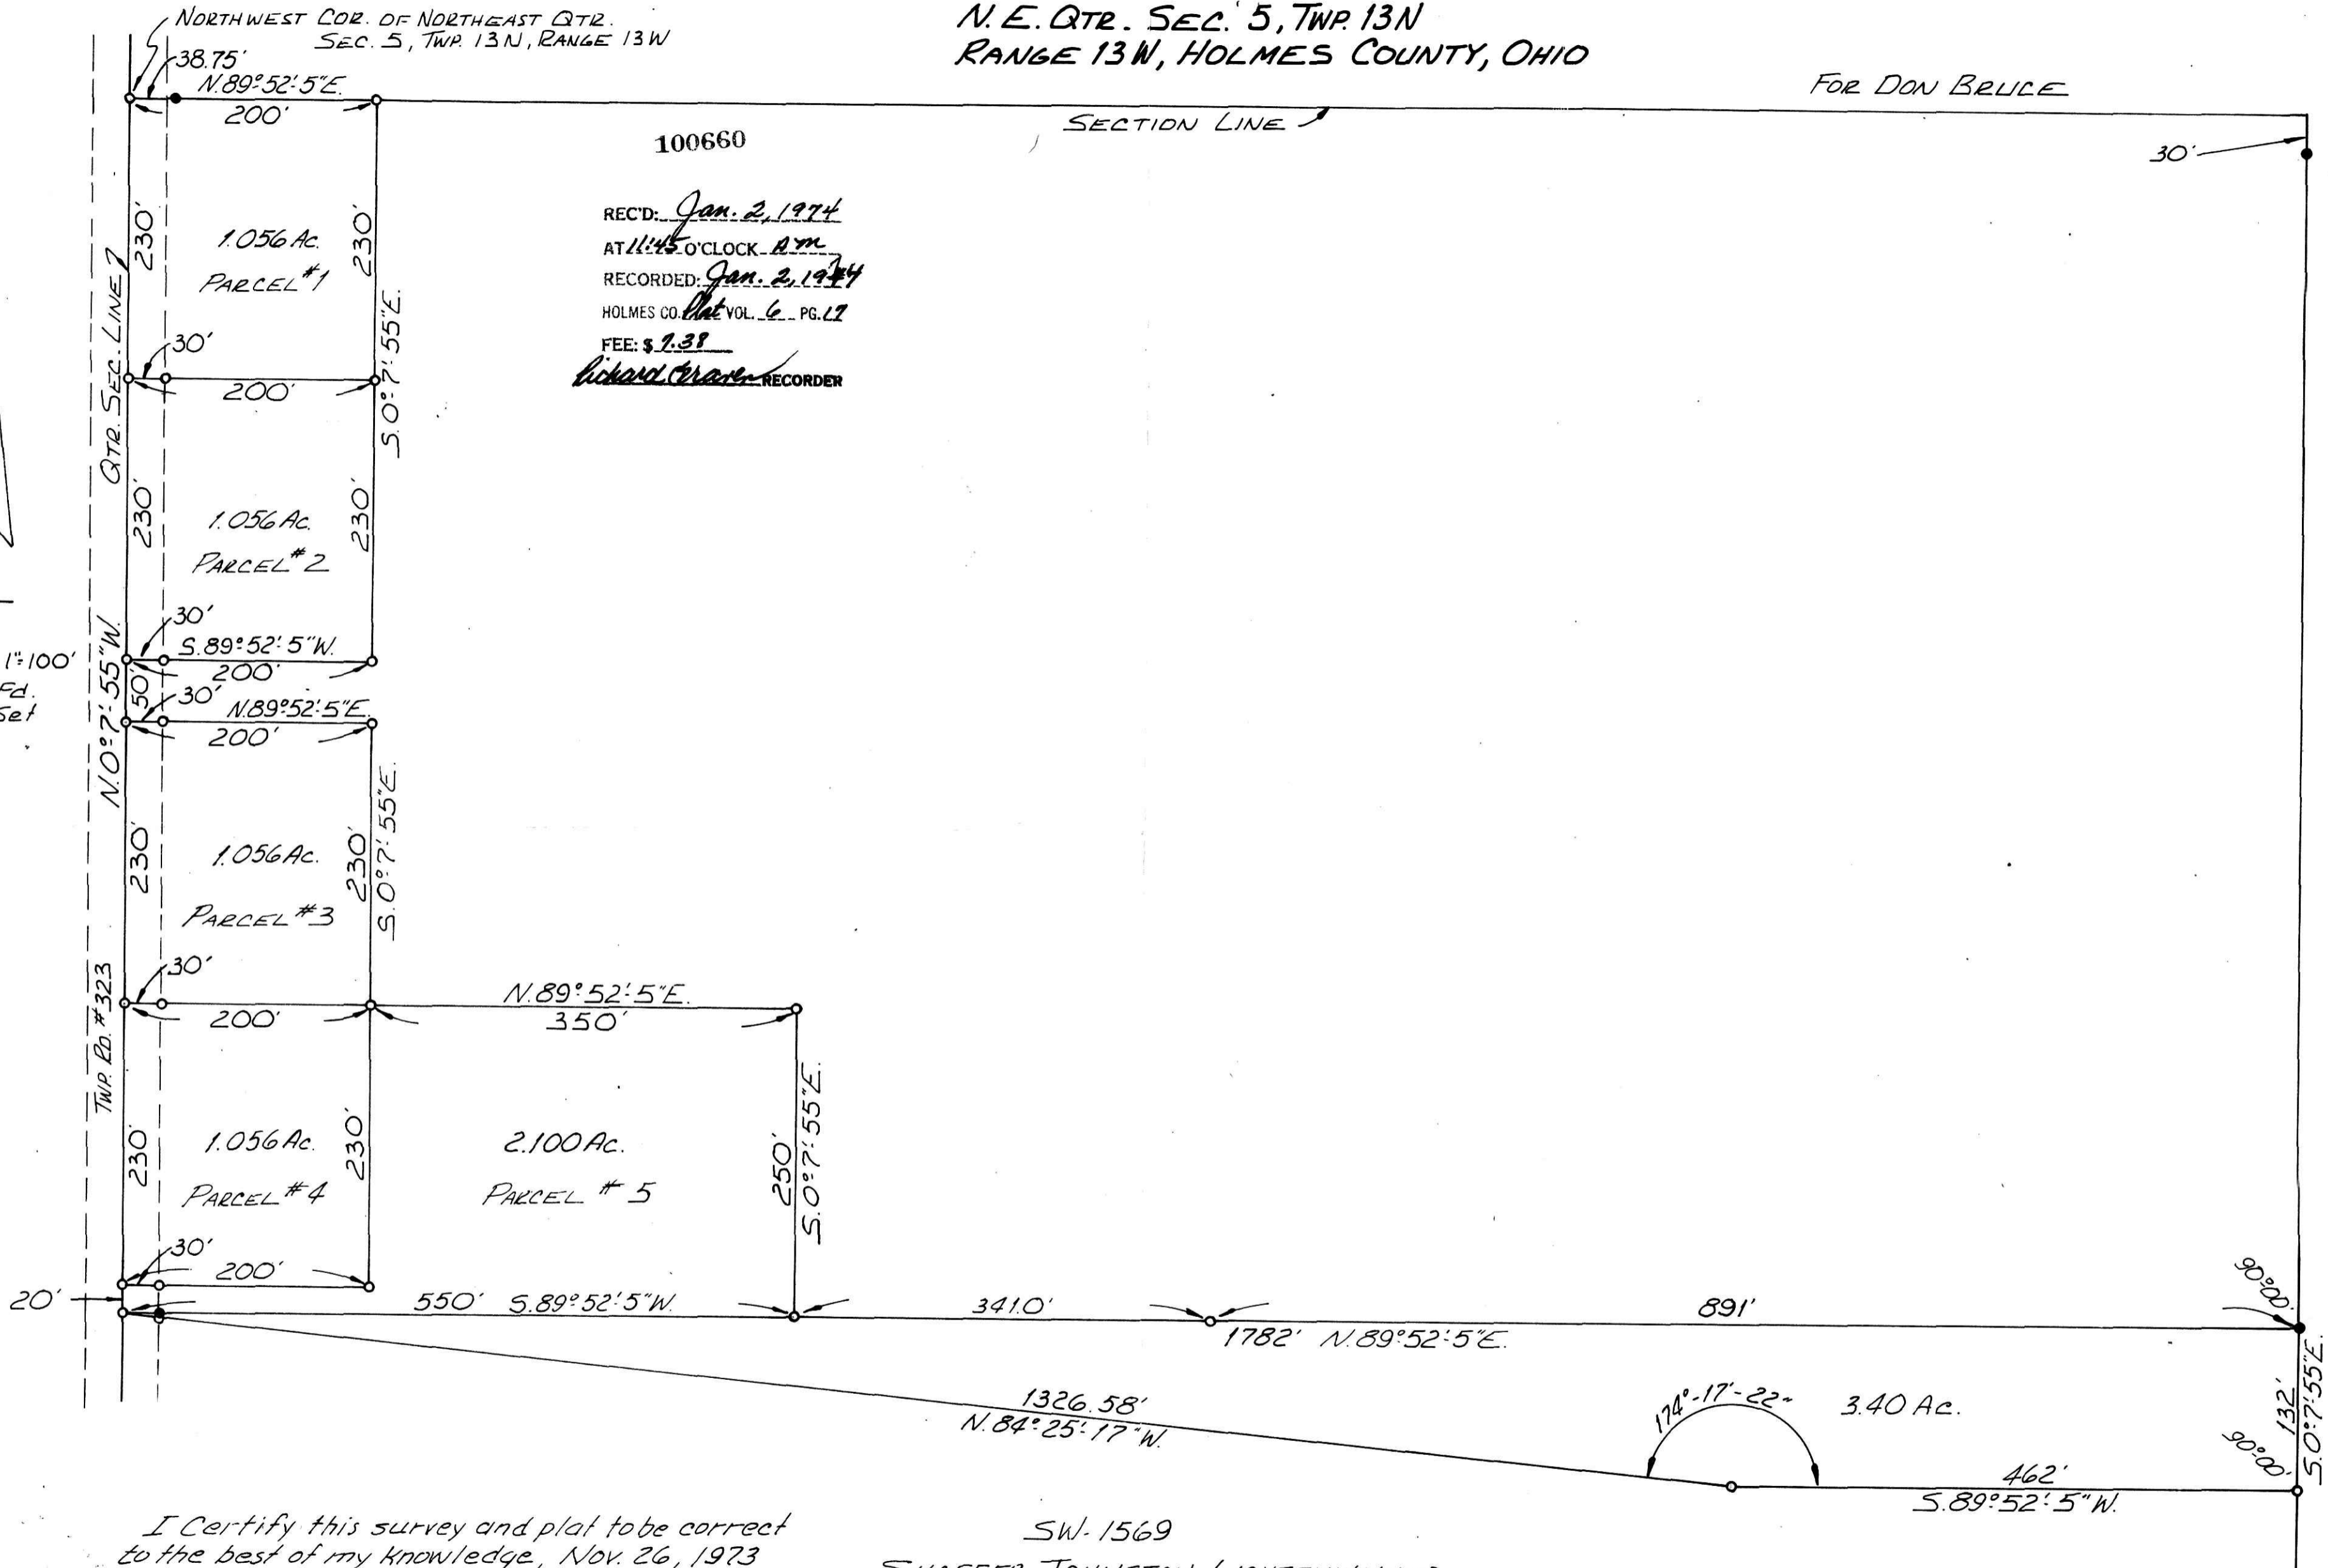 NORTHWEST COR. OF NORTHEAST QTR.
SEC. 5, TWP. 13N, RANGE 13W
N.E. QTR. SEC. 5, TWP. 13N
RANGE 13W, HOLMES COUNTY, OHIO
FOR DON BRUCE
38.75'
N.89°52'5"E.
200'
SECTION LINE
30'
100660
REC'D: Jan. 2, 1974
AT 11:45 O'CLOCK AM
RECORDED: Jan. 2, 1974
HOLMES CO. Plat VOL. 6 PG. 17
FEE: $
Richard Craven RECORDER
QTR. SEC. LINE
230'
1.056 Ac.
PARCEL #1
230'
S.0°7'55"E.
30'
200'
230'
1.056 Ac.
PARCEL #2
230'
30'
S.89°52'5"W.
200'
1"=100'
Fd.
Set
N.0°7'55"W.
50'
30'
N.89°52'5"E.
200'
230'
1.056 Ac.
PARCEL #3
230'
S.0°7'55"E.
TWP. RD. #323
30'
200'
N.89°52'5"E.
350'
230'
1.056 Ac.
PARCEL #4
230'
2.100 Ac.
PARCEL # 5
250'
S.0°7'55"E.
30'
200'
20'
550' S.89°52'5"W.
341.0'
891'
90°00'
1782' N.89°52'5"E.
1326.58'
N.84°25'17"W.
174°-17'-22"
3.40 Ac.
132'
S.0°7'55"E.
90°00'
462'
S.89°52'5"W.
I Certify this survey and plat to be correct
to the best of my knowledge, Nov. 26, 1973
SW-1569